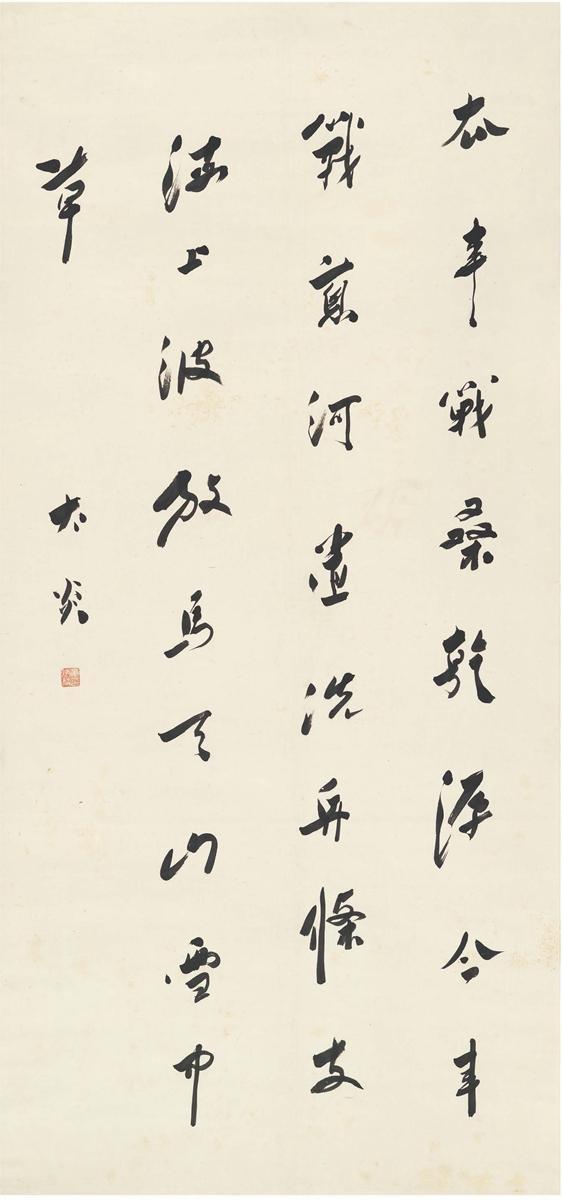 去年戰桑乾源今年
戰葱河道洗兵條支
海上波放馬天山雪中
草 太炎